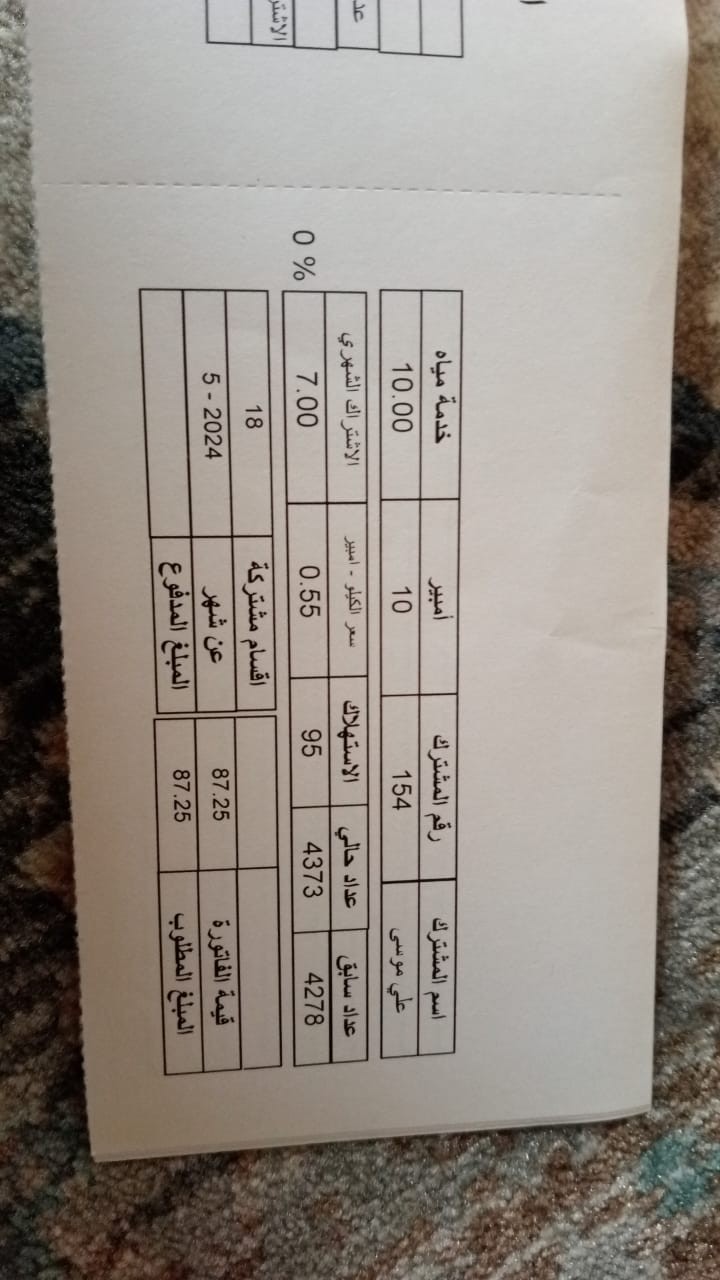 اسم المشترك رقم المشترك أمبير خدمة مياه
علي موسى 154 10 10.00
عداد سابق عداد حالي الاستهلاك سعر الكيلو - امبير الاشتراك الشهري
4278 4373 95 0.55 7.00 0 %
اقسام مشتركة 18
قيمة الفاتورة 87.25 عن شهر 5 - 2024
المبلغ المطلوب 87.25 المبلغ المدفوع